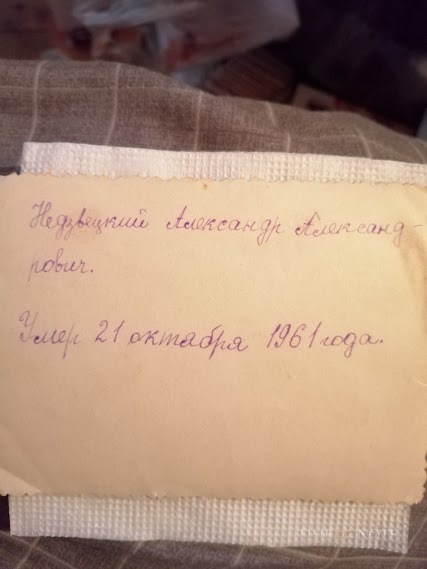 Недзвецкий Александр Александ-
рович.
Умер 21 октября 1961 года.